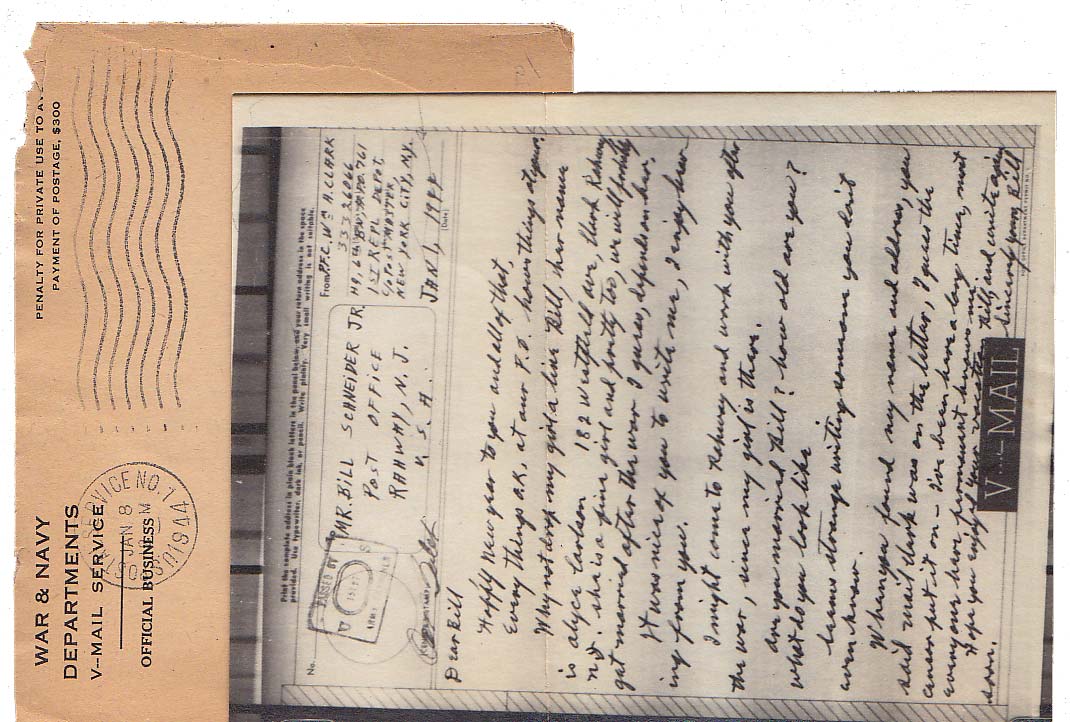 PENALTY FOR PRIVATE USE TO
PAYMENT OF POSTAGE, $300
WAR & NAVY
DEPARTMENTS
V--MAIL SERVICE
OFFICIAL BUSINESS
SERVICE NO. 1
JAN 8
1944
Print the complete address in plain block letters in the panel below, and your return address in the space
provided. Use typewriter, dark ink, or pencil. Write plainly. Very small writing is not suitable.
No.
MR. BILL SCHNEIDER JR.
POST OFFICE
RAHWAY, N. J.
U. S. A.
From
PFC. Wm A. CLARK
33326066
HQ. 6th BN. APO. 761
1st REPL DEPT.
C/O POSTMASTER
NEW YORK CITY, N.Y.
JAN 1, 1944
(Date)
PASSED BY
ARMY
Dear Bill
Happy New year to you and all of that,
Every things O.K. at our P.O. hows things at your.
Why not drop my girl a line Bill, her name
is alyce Larkson 182 Westfield ave, Clark Rahway
N.J. she is a fine girl and pretty too, we will probily
get married after the war I guess, depends on her.
It was nice of you to write me, I enjoy hear
ing from you.
I might come to Rahway and work with you after
the war, since my girl is there.
are you married Bill? how old are you?
what do you look like
Seems strange writing someone you dont
even know.
Where you found my name and address, you
said mail that was on the letter, I guess the
censor put it on - I've been here a long time, most
every one here permanant knows me.
Hope you enjoy your vacation Bill, and write again
soon.
Sincerly yours, Bill
V--MAIL